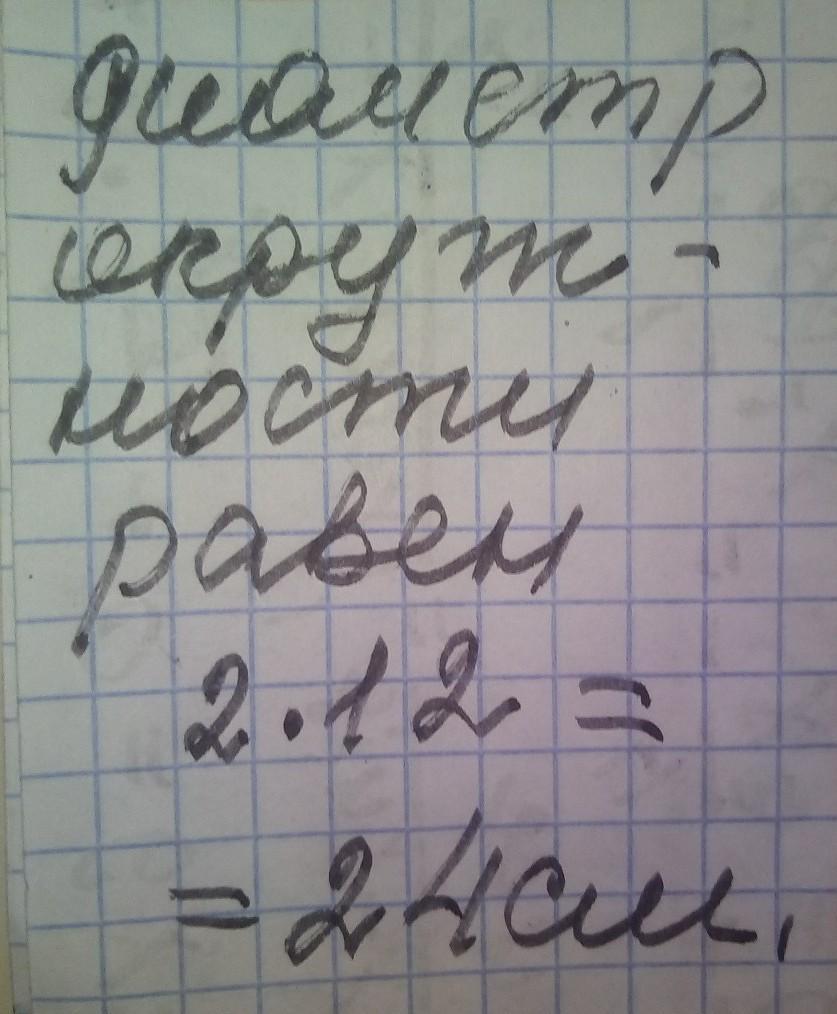 диаметр
окруж-
ности
равен
2·12=
=24см.